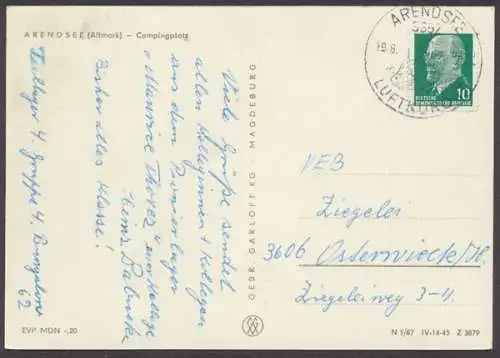 ARENDSEE (Altmark) — Campingplatz
Viele Grüße sendet
allen Kolleginnen + Kollegen
aus dem Pionierlager
"Maurice Thorez" euer Kollege
Heinz
Bisher alles Klasse!
Zeltlager 4. Gruppe 4. Bungalow
62
GEBR. GARLOFF KG · MAGDEBURG
ARENDSEE
LUFTKURORT
19.8.
DEUTSCHE
DEMOKRATISCHE REPUBLIK
10
VEB
Ziegelei
3606 Osterwieck/H.
Ziegeleiweg 3-11
EVP MDN -,20
N 1/67 IV-14-45 Z 3879